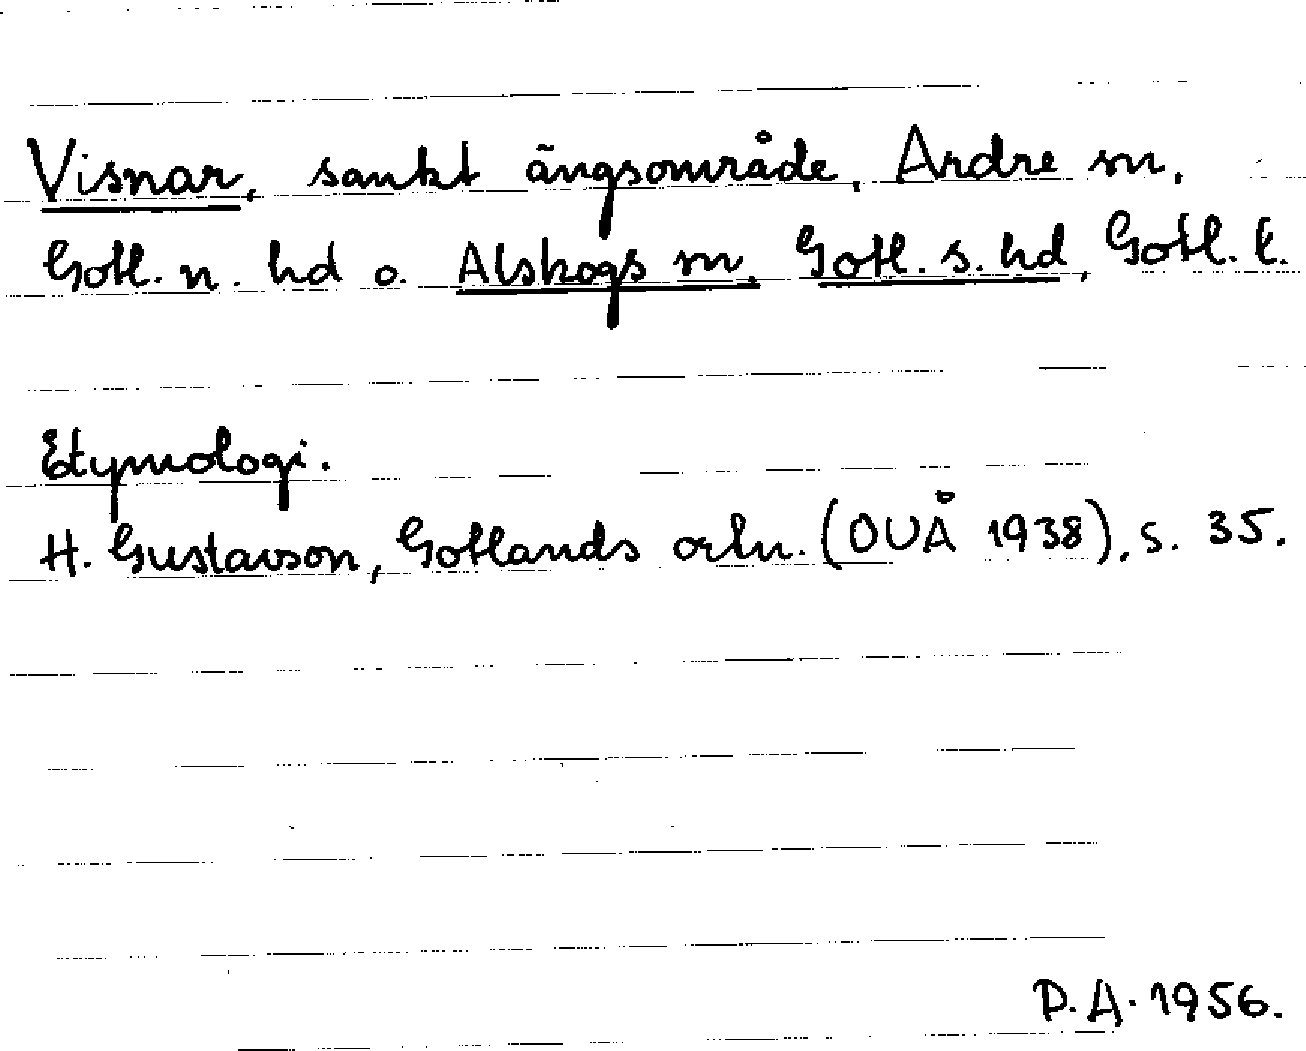 Visnar, sankt ängsområde, Ardre sn,
Gotl. n. hd o. Alskogs sn, Gotl. s. hd, Gotl. l.
Etymologi.
H. Gustavson, Gotlands ortn. (OUÅ 1938), s. 35.
P.A. 1956.